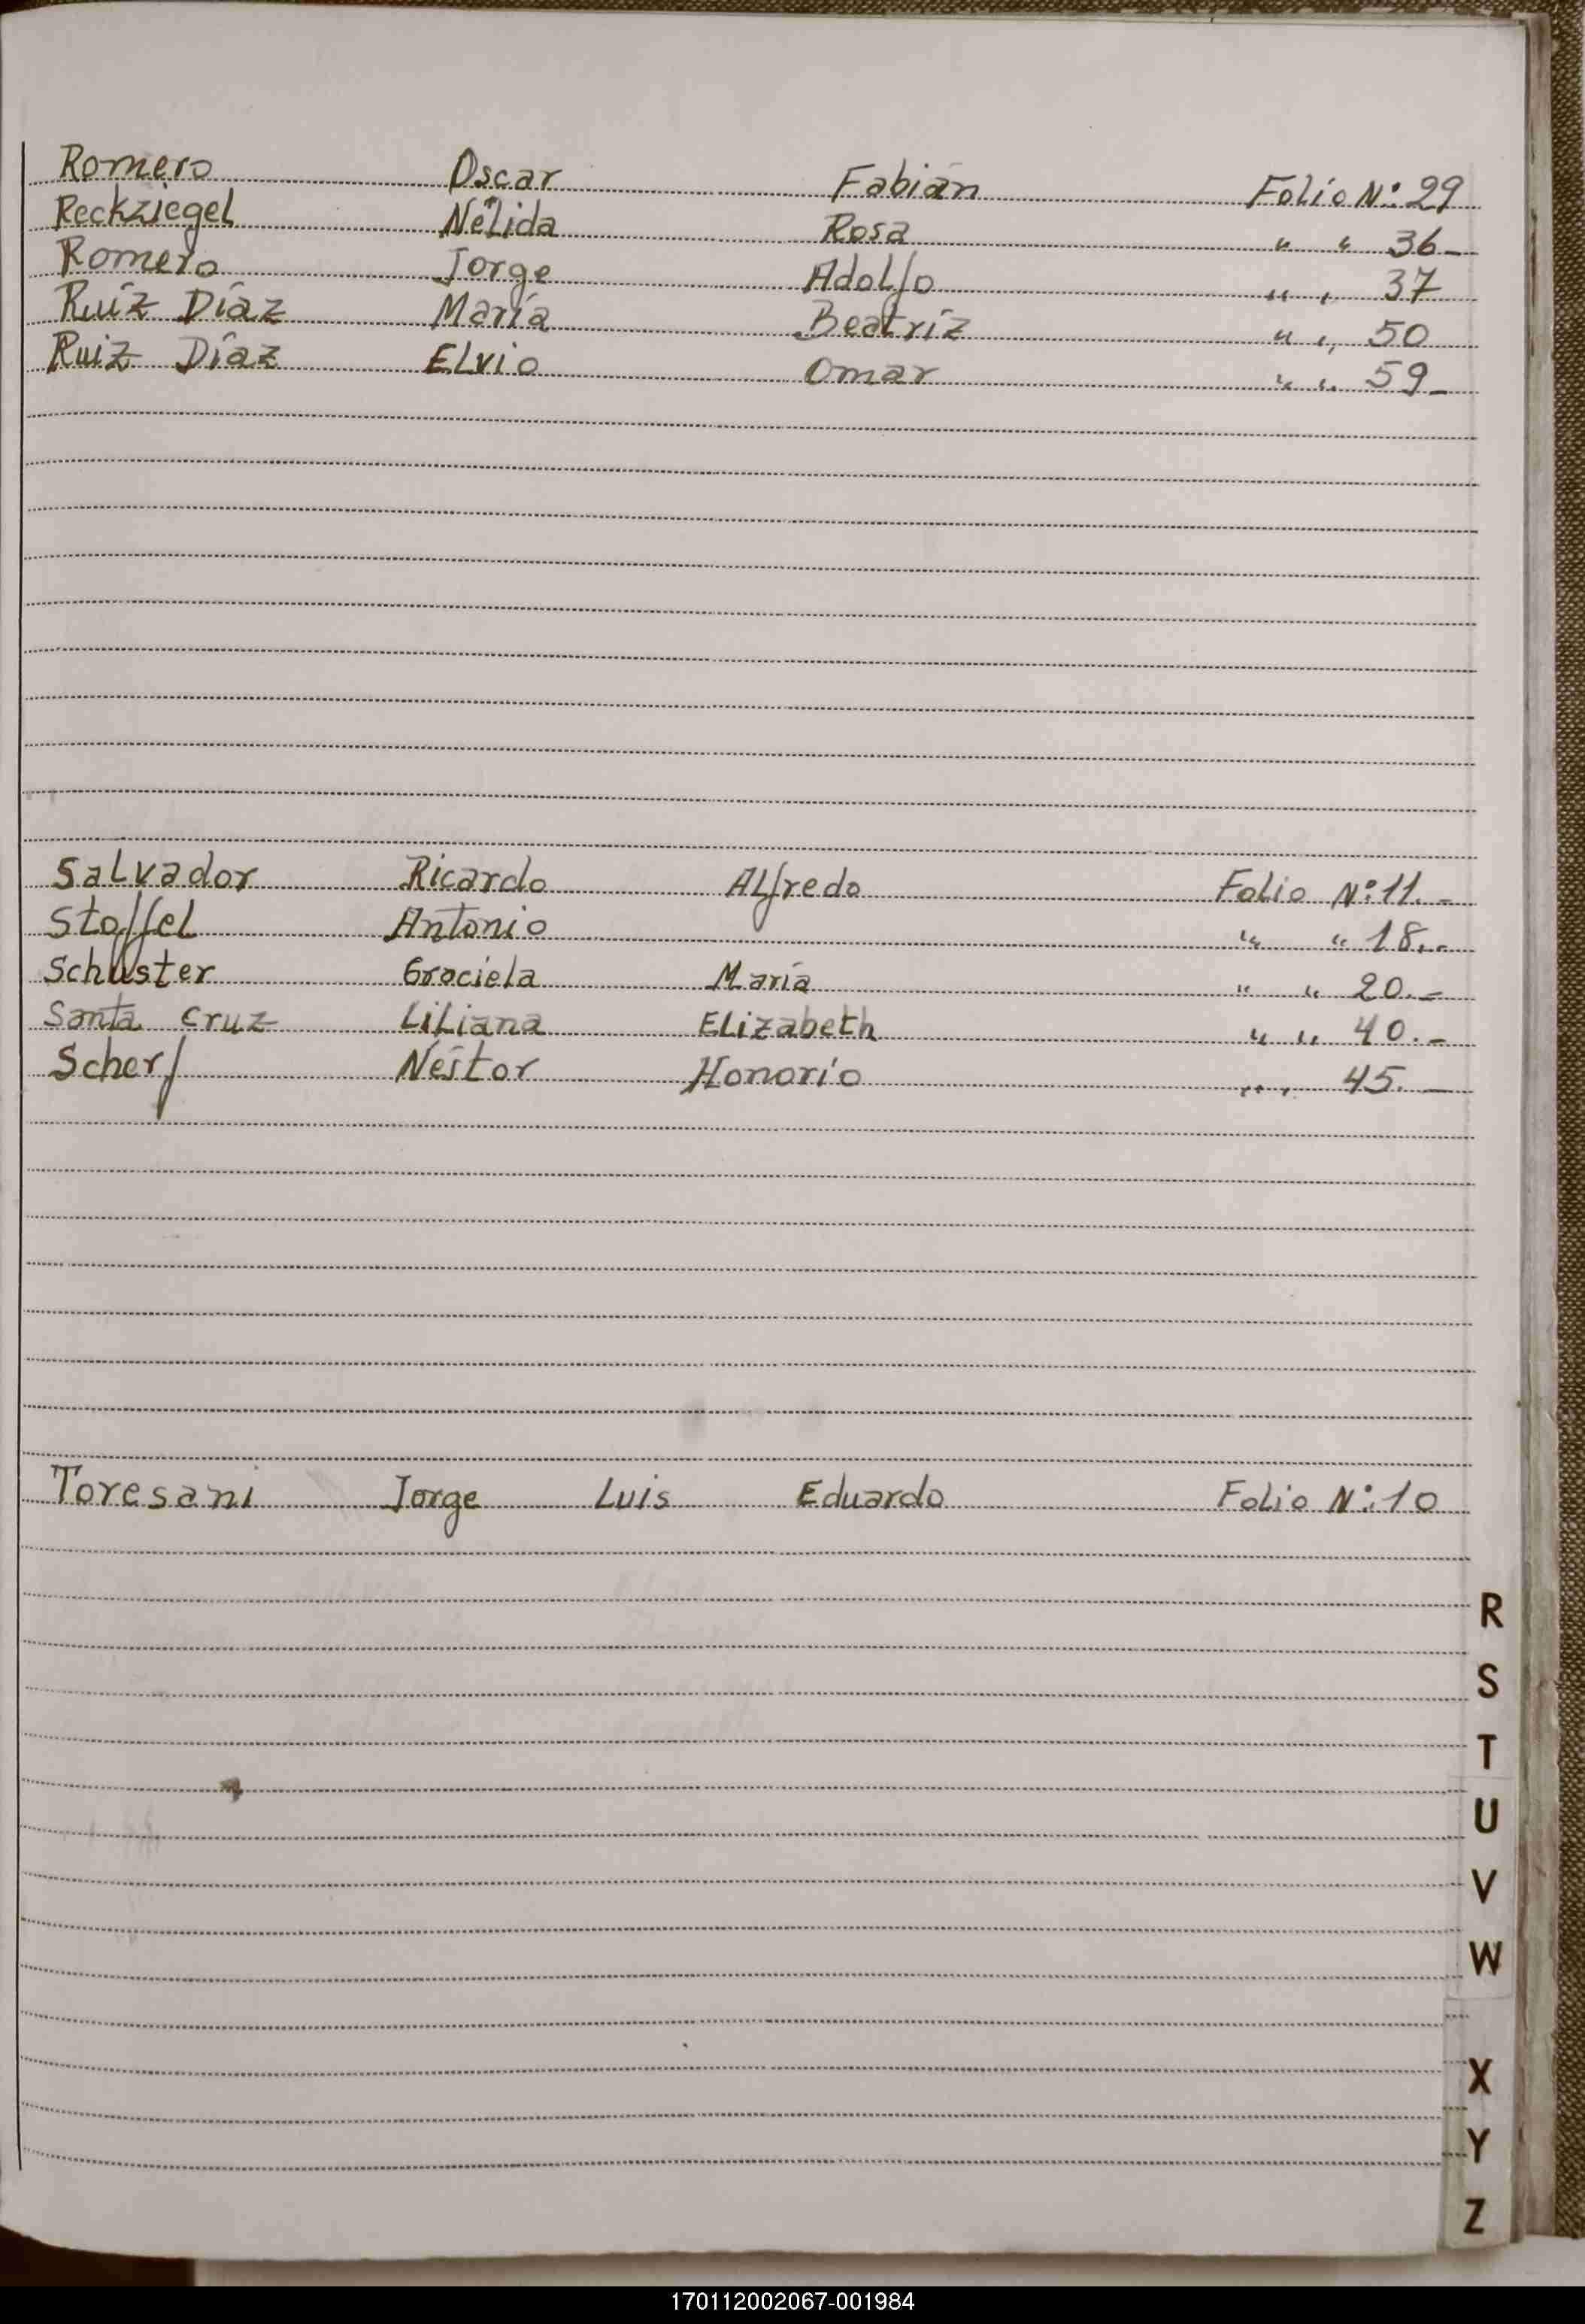 Romero Oscar Fabián Folio N: 29
Reckziegel Nélida Rosa " " 36-
Romero Jorge Adolfo " " 37
Ruíz Díaz María Beatríz " " 50
Ruiz Díaz Elvio Omar " " 59-
Salvador Ricardo Alfredo Folio N: 11.-
Stoffel Antonio " " 18.-
Schuster Graciela María " " 20.-
Santa Cruz Liliana Elizabeth " " 40.-
Scherf Néstor Honorio " " 45.-
Toresani Jorge Luis Eduardo Folio N: 10
R
S
T
U
V
W
X
Y
Z
170112002067-001984